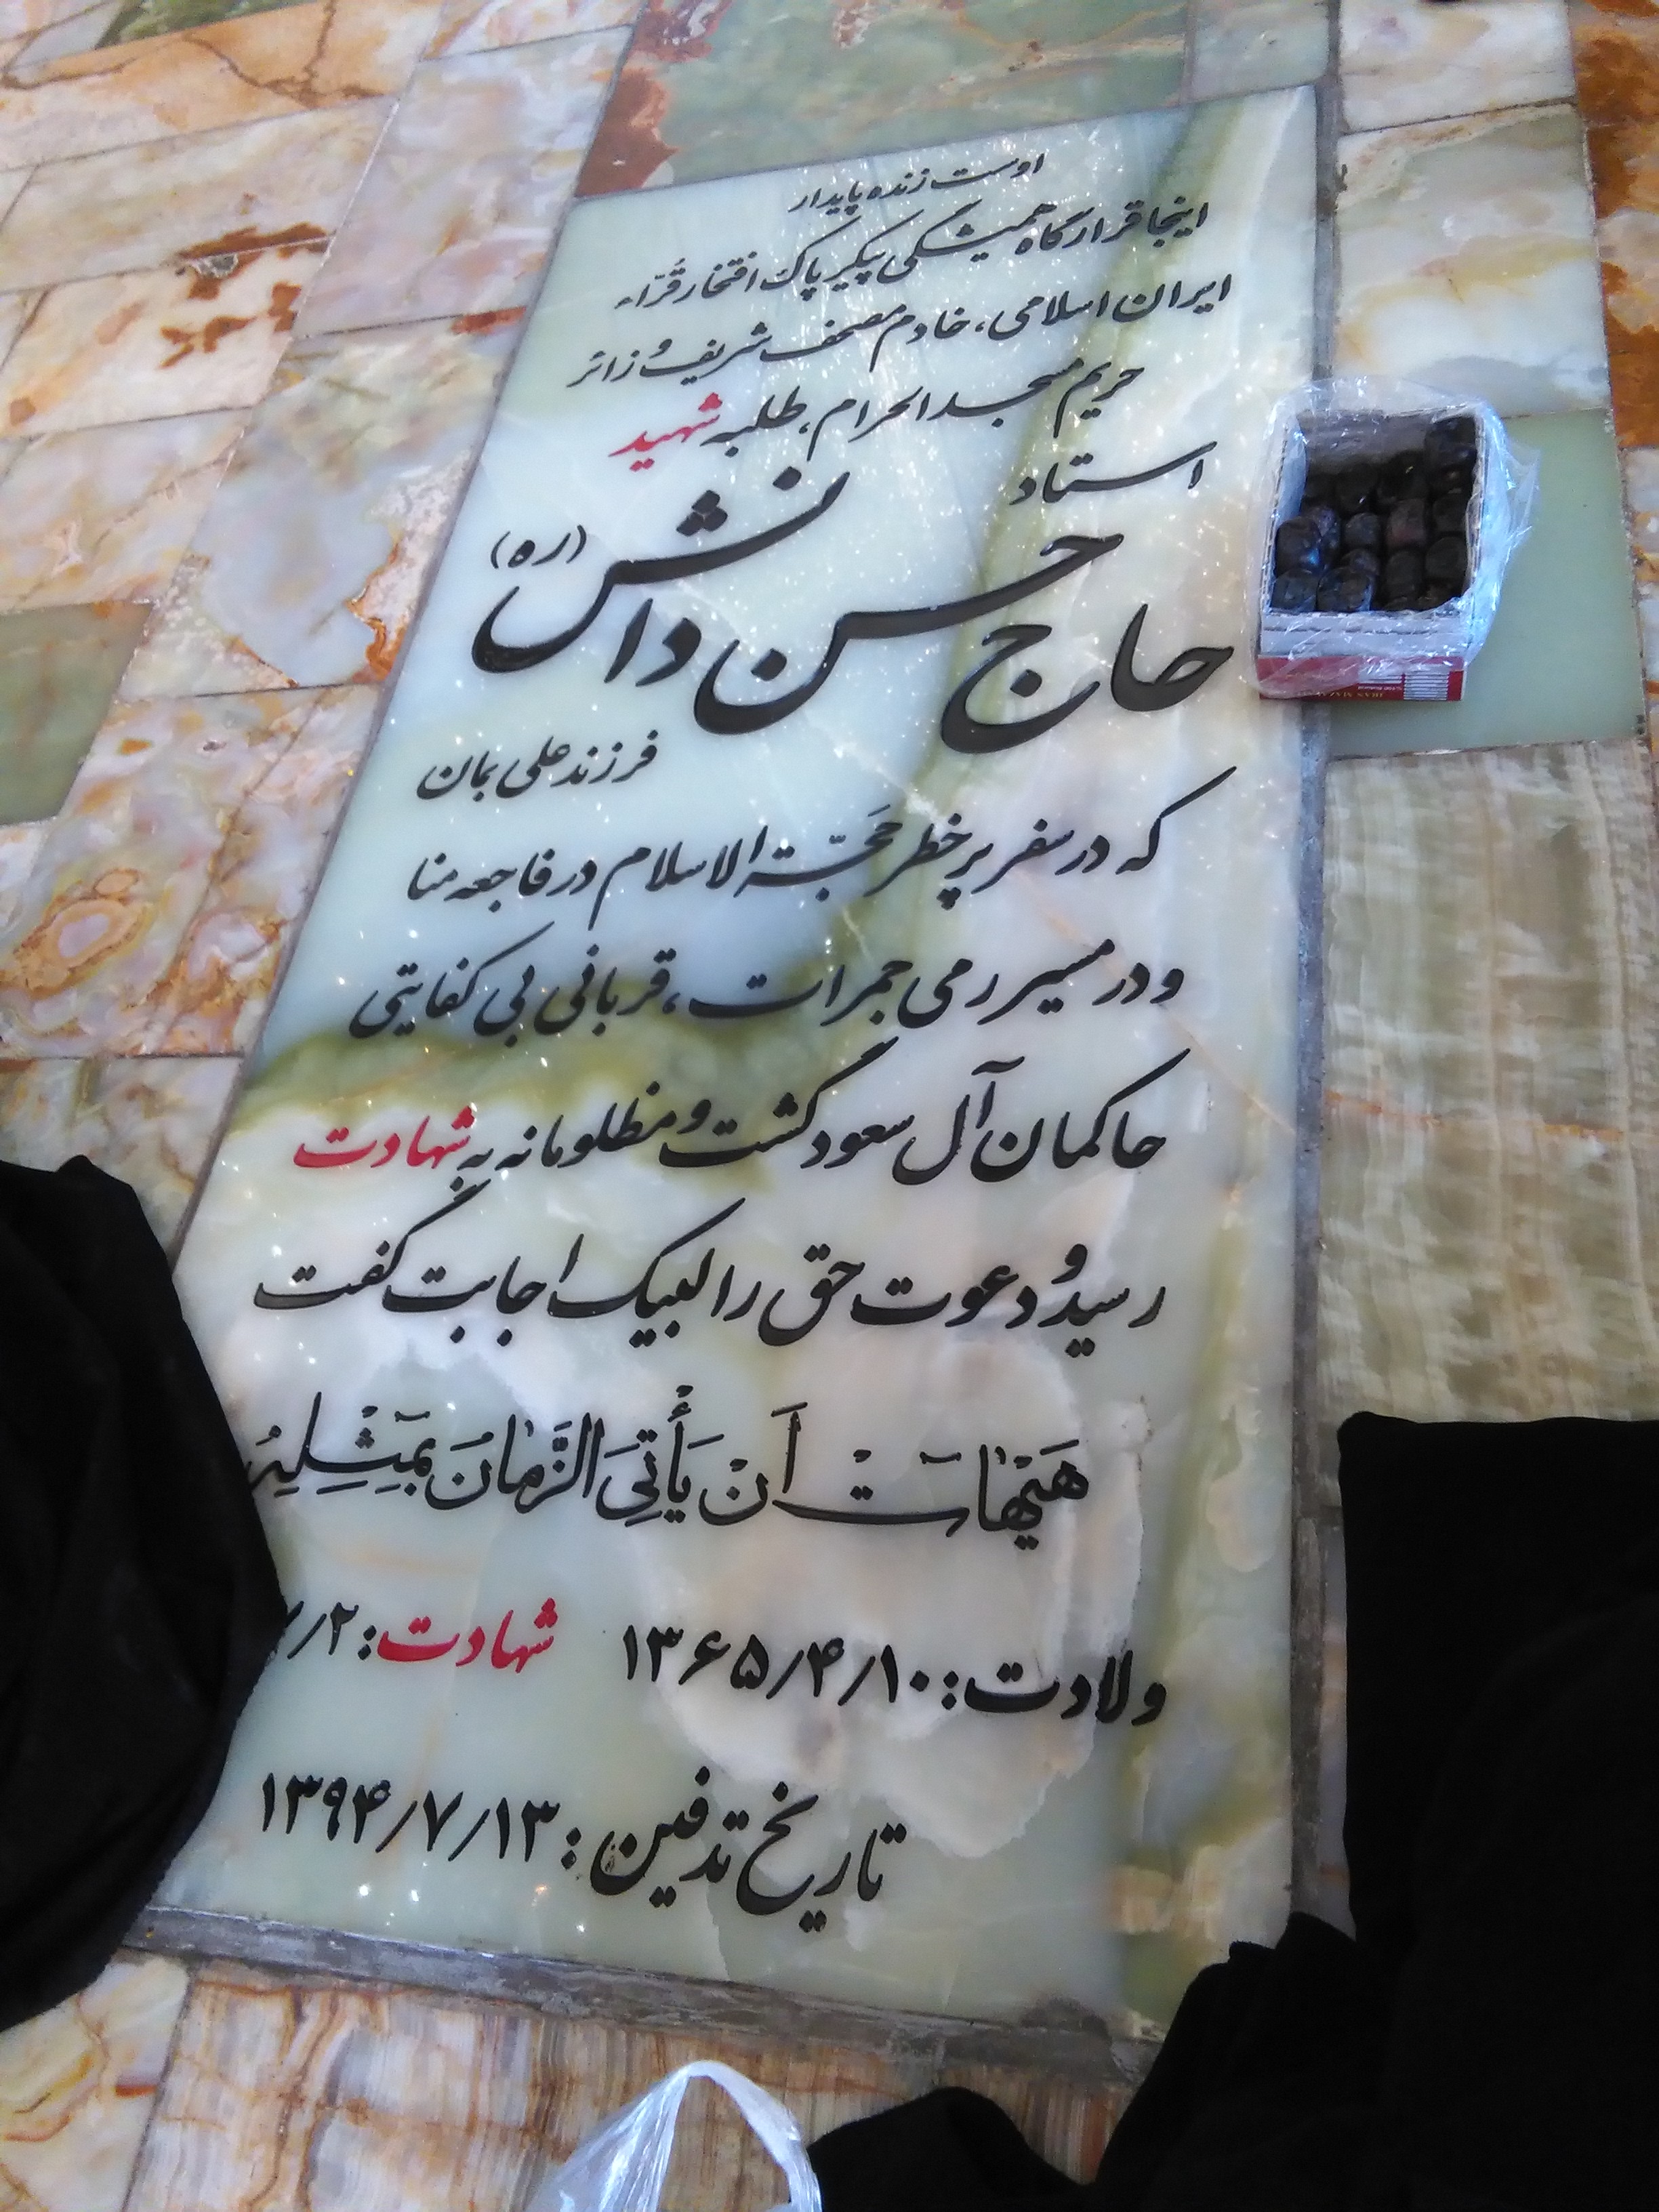 اوست زنده پایدار
اینجا قرارگاه همیشگی پیکر پاک افتخار قُرّاء
ایران اسلامی، خادم مصحف شریف و زائر
حریم مسجدالحرام، طلبه شهید
استاد
حاج حسن دانش (ره)
فرزند علی بمان
که در سفر پر خطر حَجّة الاسلام در فاجعه منا
و در مسیر رمی جمرات، قربانی بی کفایتی
حاکمان آل سعود گشت و مظلومانه به شهادت
رسید و دعوت حق را لبیک اجابت گفت
هَیْهاتَ اَنْ یَأْتِیَ الزَّمانَ بِمَِثْلِهِ
ولادت: ۱۳۶۵/۴/۱۰ شهادت: ۲/
تاریخ تدفین: ۱۳۹۴/۷/۱۳